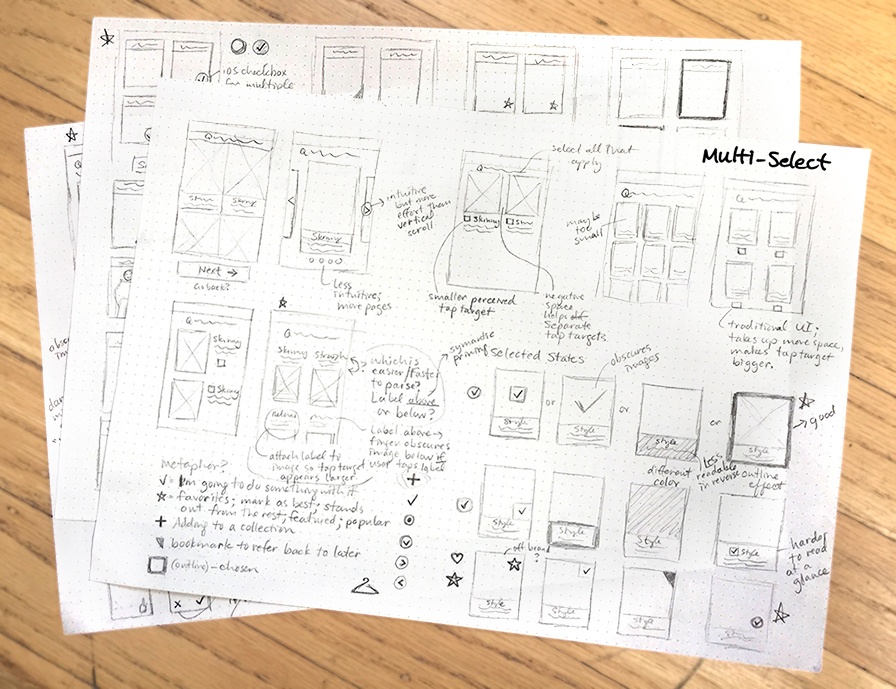 iOS checkbox
for multiple
Multi-Select
select all that
apply
intuitive
but more
effort than
vertical
scroll
Skinny
Skinny
Skinny
Skinny
maybe
too
small
Next →
Go back?
Less
intuitive;
more pages
smaller perceived
tap target
negative
space
helps
separate
tap targets
traditional UI;
takes up more space,
makes tap target
bigger.
Skinny
Skinny
Skinny
which is
easier/faster
to parse?
Label above
or below?
Selected States
obscures
images
Style
or
Style
or
Style
or
Style
good
Label above →
finger obscures
image below if
user taps label
attach label to
image so tap target
appears larger
different
color
less
readable
in reverse
outline
effect
metaphor?
✓ = I'm going to do something with it
☆ = favorites; mark as best; stands
out from the rest; featured; popular
+ Adding to a collection
bookmark to refer back to later
(outline) - chosen
Style
Style
Style
Style
harder
to read
at a
glance
off brand
?
Style
Style
Style